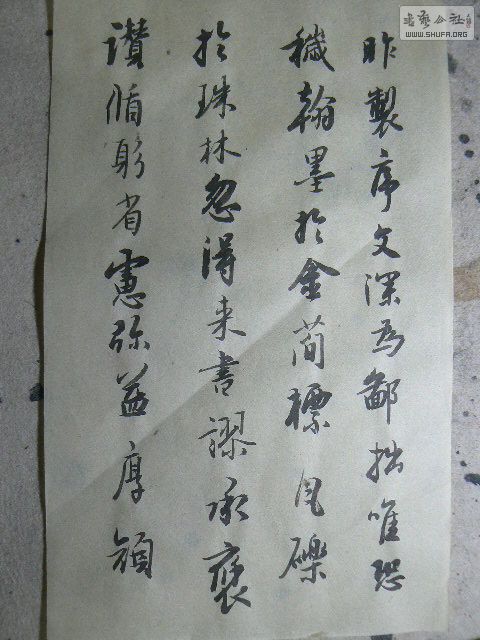 昨製序文深為鄙拙唯恐
穢翰墨於金簡標瓦礫
於珠林忽得来書謬承褒
讃循躬省慮弥益厚顏
書藝公社
WWW.SHUFA.ORG